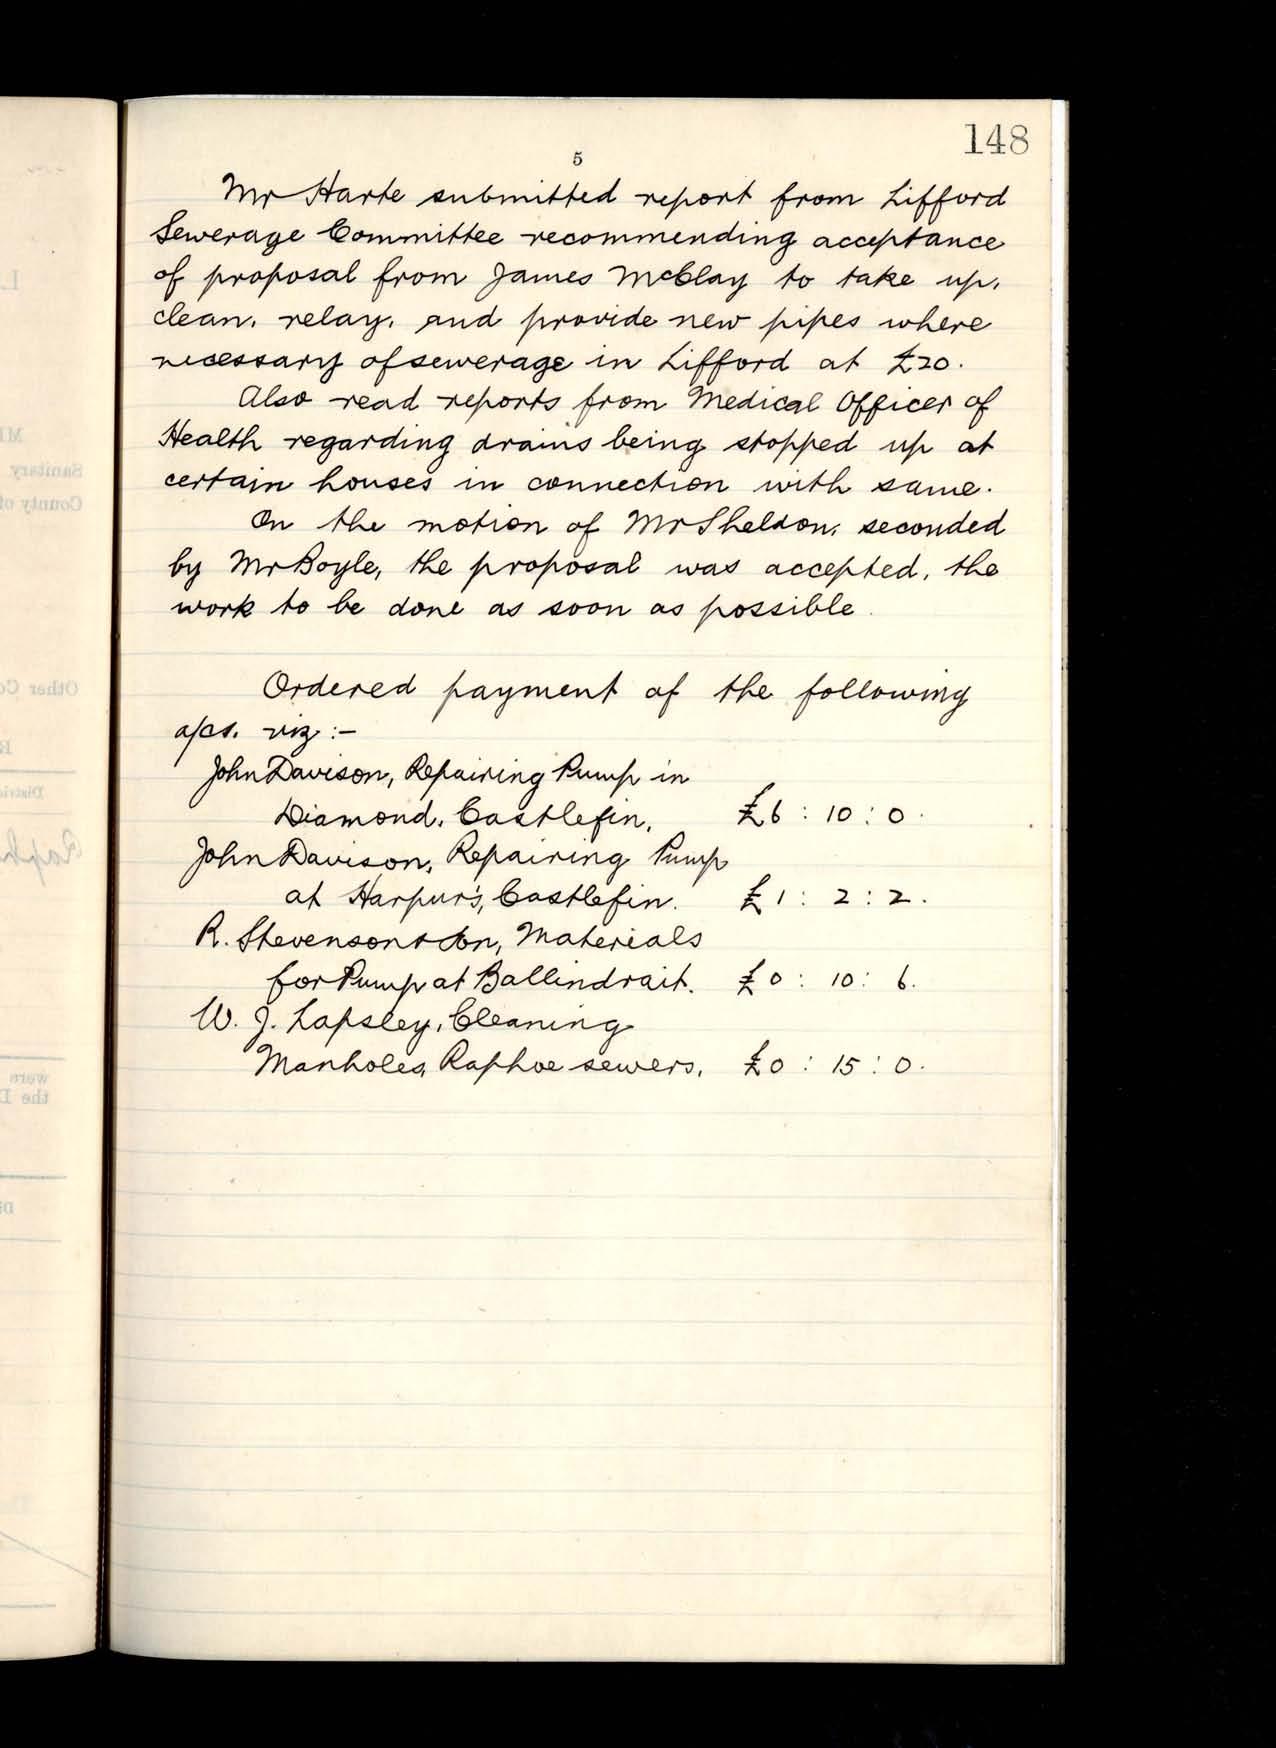 148
5
Mr Harte submitted report from Lifford
Sewerage Committee recommending acceptance
of proposal from James McClay to take up,
clean, relay, and provide new pipes where
necessary of sewerage in Lifford at £20.
Also read reports from Medical Officer of
Health regarding drains being stopped up at
certain houses in connection with same.
On the motion of Mr Sheldon, seconded
by Mr Boyle, the proposal was accepted, the
work to be done as soon as possible.
Ordered payment of the following
a/cs. viz :-
John Davison, Repairing Pump in
Diamond, Castlefin, £6 : 10 : 0.
John Davison, Repairing Pump
at Harpur's, Castlefin. £1 : 2 : 2.
R. Stevenson & Son, Materials
for Pump at Ballindrait. £0 : 10 : 6.
W. J. Lapsley, Cleaning
Manholes, Raphoe sewers, £0 : 15 : 0.